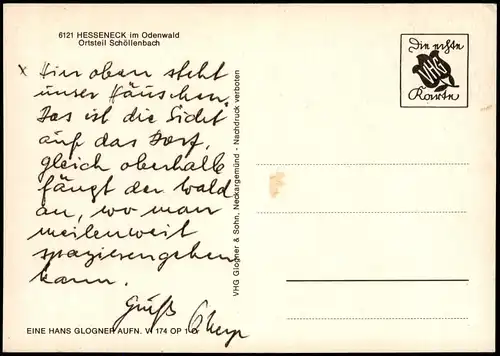 6121 HESSENECK im Odenwald
Ortsteil Schöllenbach
x Hier oben steht
unser Häuschen.
Das ist die Sicht
auf das Dorf,
gleich oberhalb
fängt der Wald
an, wo man
meilenweit
spazierengehen
kann.
Gruß
EINE HANS GLOGNER AUFN. V 174 OP 1
VHG Glogner & Sohn, Neckargemünd - Nachdruck verboten
Die echte
VHG
Karte